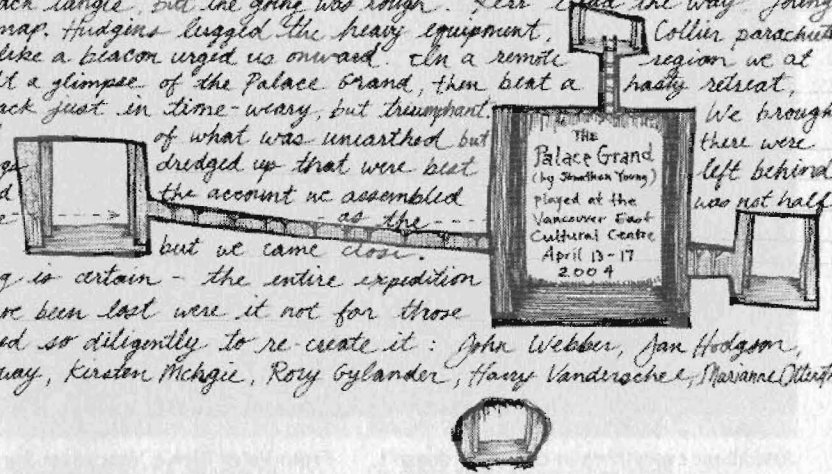 tangle, but the going was rough. Kerr the way. Young
map. Hudgins lugged the heavy equipment, Collier parachute
like a beacon urged us onward. In a remote region we at
a glimpse of the Palace Grand, then beat a hasty retreat,
ack just in time-weary, but triumphant. We brough
of what was unearthed but there were
gs dredged up that were best left behind
the account we assembled was not half
as the
but we came close.
g is certain - the entire expedition
ve been lost were it not for those
ed so diligently to re-create it: John Webber, Jan Hodgson,
way, Kirsten Rory Gylander, Harry Vanderschee, Marianne
THE
Palace Grand
(by Jonathon Young)
played at the
Vancouver East
Cultural Centre
April 13-17
2004